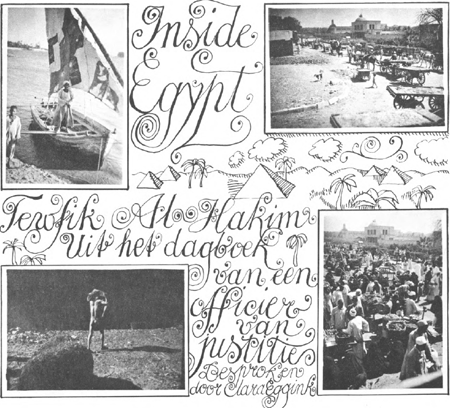 Inside
Egypt
Tewfik Al Hakim
Uit het dagboek
van een
officier
van
justitie
Besproken
door Clara Eggink